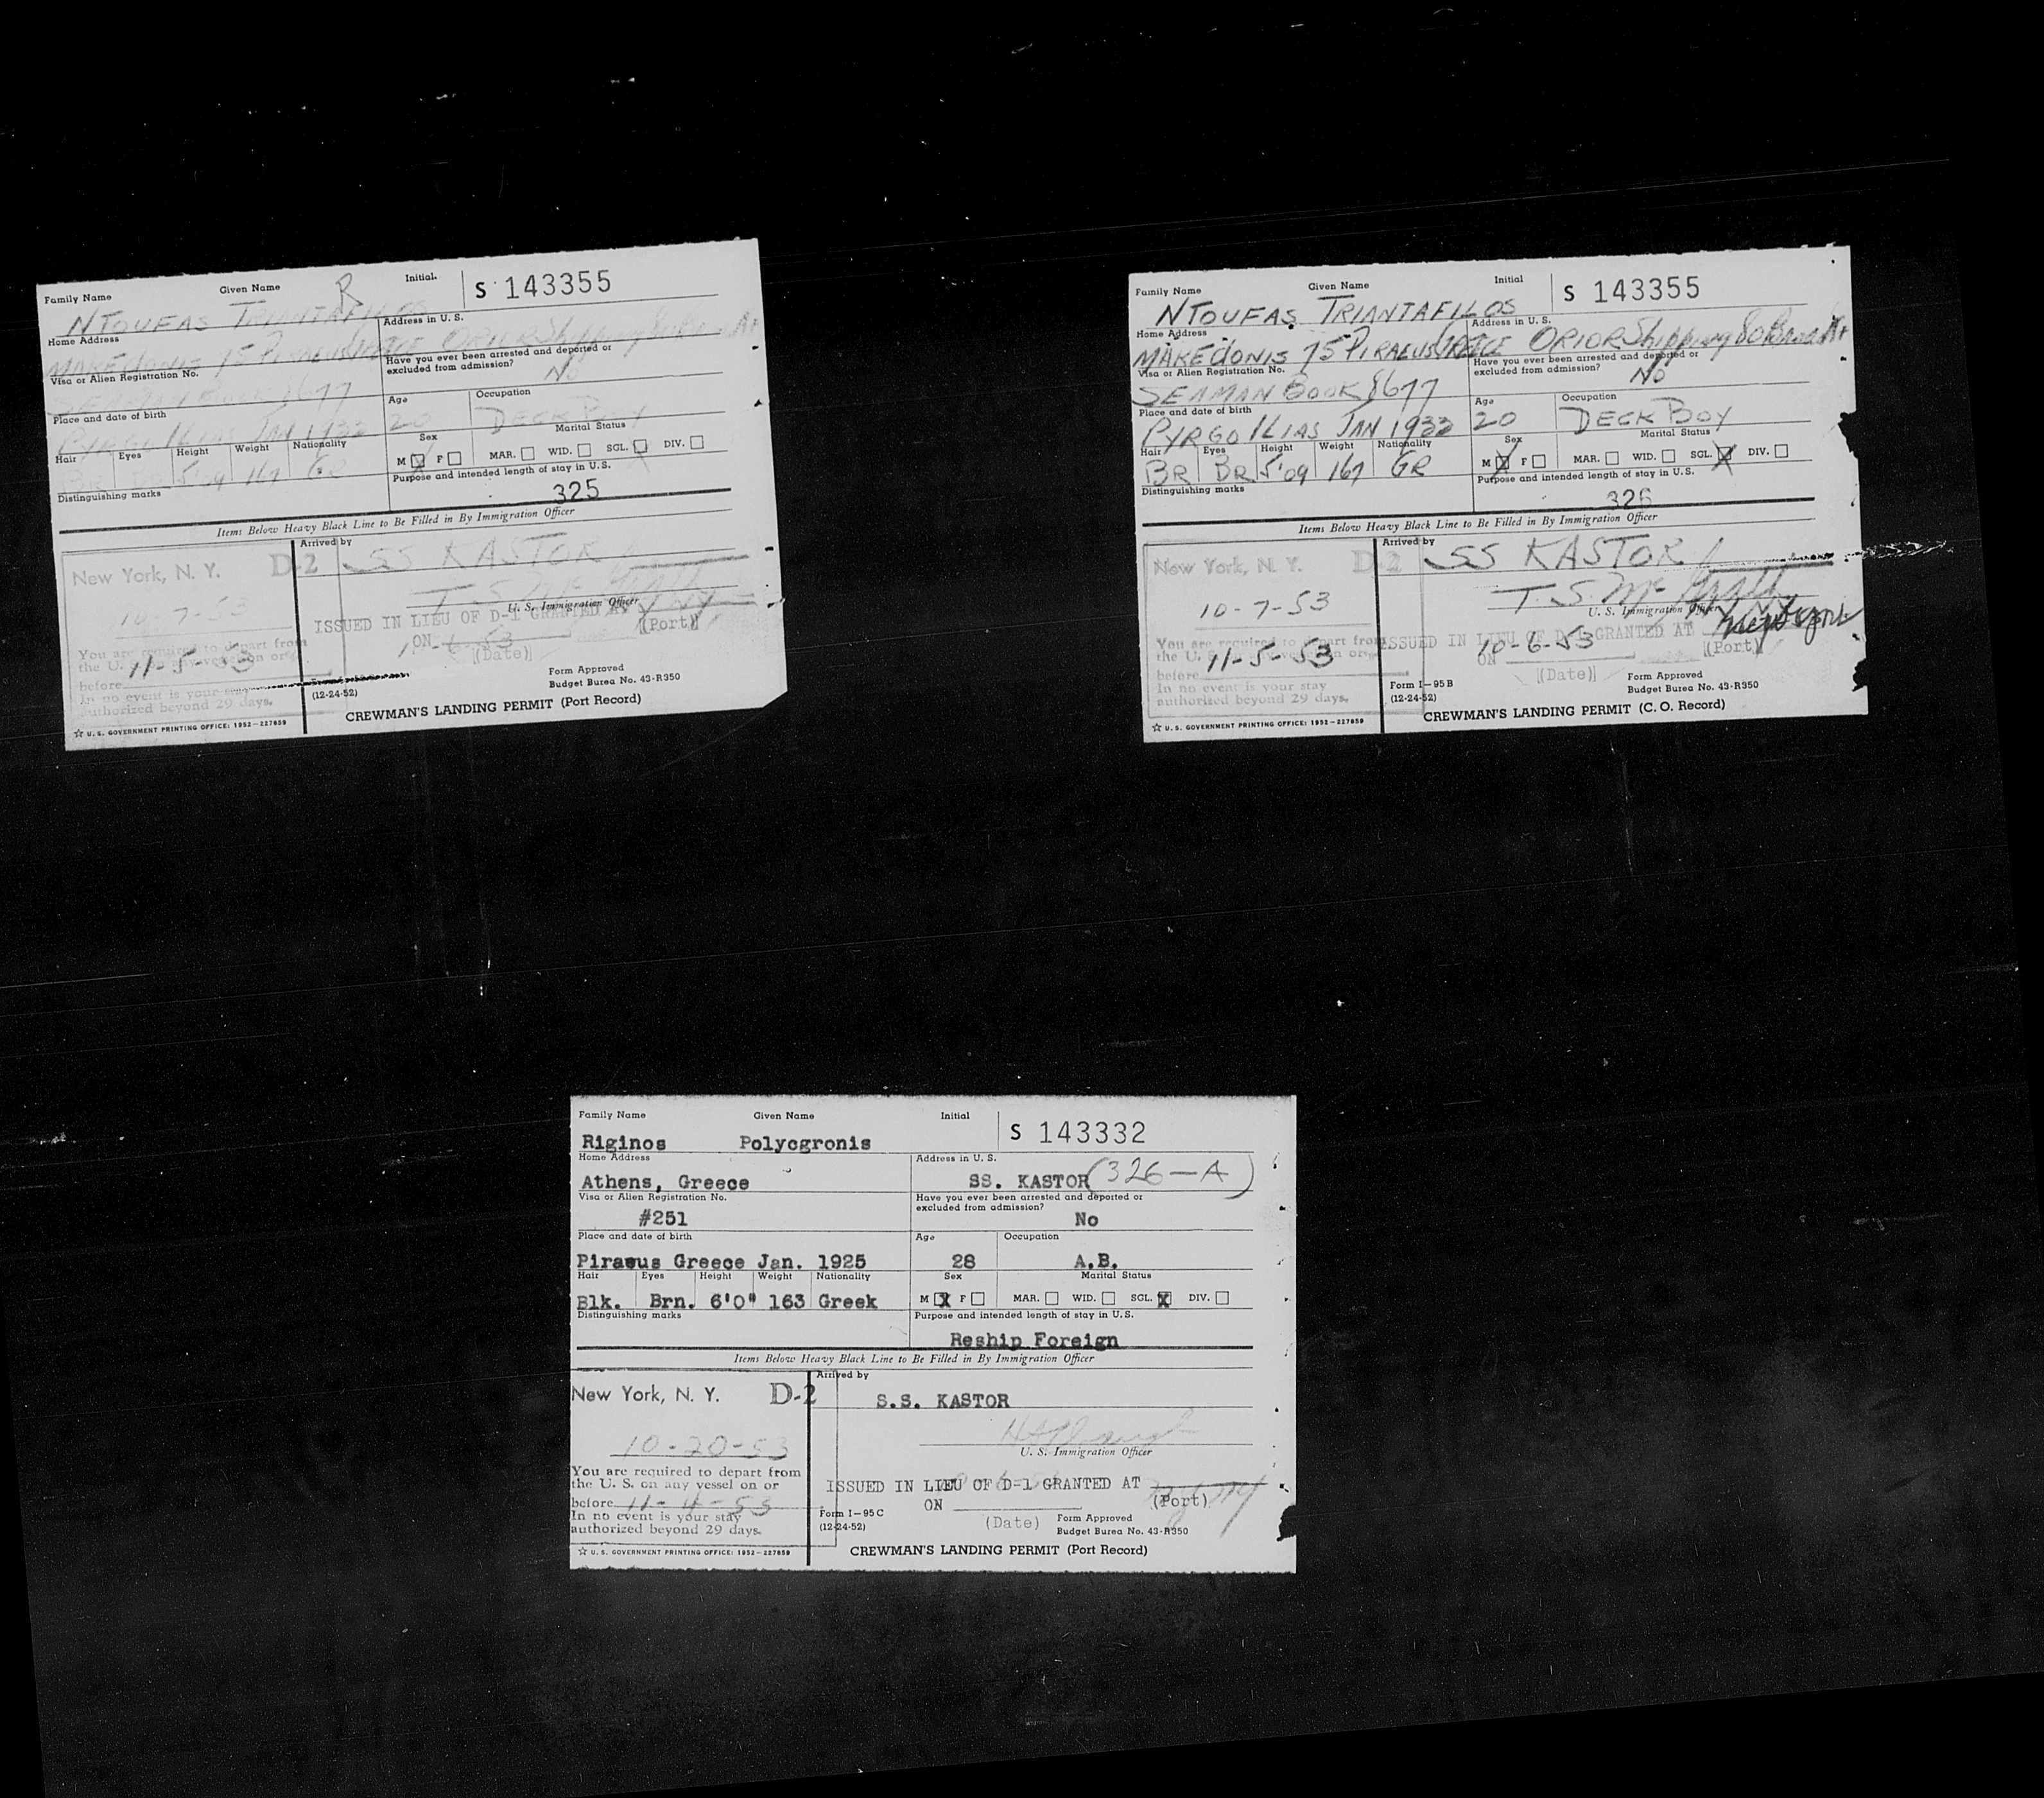 Family Name Given Name R Initial. S 143355
NTOUFAS TRIANTAFILOS
Home Address Address in U. S.
MAKEDONIS 75 PIRAEUS GREECE ORIOR Shipping
Visa or Alien Registration No. Have you ever been arrested and deported or excluded from admission?
SEAMAN BOOK 8677 No
Place and date of birth Age Occupation
PYRGO ILIAS JAN 1933 20 DECK BOY
Hair Eyes Height Weight Nationality Sex Marital Status
BR BR 5'09 167 GR M X F MAR. WID. SGL. X DIV.
Distinguishing marks Purpose and intended length of stay in U. S.
325
Items Below Heavy Black Line to Be Filled in By Immigration Officer
Arrived by
New York, N. Y. D-2 SS KASTOR
10-7-53 T. S. Mc
U. S. Immigration Officer
You are required to depart from ISSUED IN LIEU OF D-1 GRANTED AT
the U. S. on any vessel on or ON (Date) (Port)
before 11-5-53
In no event is your stay
authorized beyond 29 days.
(12-24-52)
Form Approved
Budget Burea No. 43-R350
☆ U. S. GOVERNMENT PRINTING OFFICE: 1952—227859
CREWMAN'S LANDING PERMIT (Port Record)
Family Name Given Name Initial S 143355
NTOUFAS TRIANTAFILOS
Home Address Address in U. S.
MAKEDONIS 75 PIRAEUS GREECE ORIOR Shipping 80 Broad
Visa or Alien Registration No. Have you ever been arrested and deported or excluded from admission?
SEAMAN BOOK 8677 No
Place and date of birth Age Occupation
PYRGO ILIAS JAN 1933 20 DECK BOY
Hair Eyes Height Weight Nationality Sex Marital Status
BR BR 5'09 167 GR M X F MAR. WID. SGL. X DIV.
Distinguishing marks Purpose and intended length of stay in U. S.
326
Items Below Heavy Black Line to Be Filled in By Immigration Officer
Arrived by
New York, N. Y. D-2 SS KASTOR
10-7-53 T. S. Mc
U. S. Immigration Officer
You are required to depart from ISSUED IN LIEU OF D-1 GRANTED AT
the U. S. on any vessel on or ON 10-6-53 (Date) (Port)
before 11-5-53
In no event is your stay
authorized beyond 29 days.
Form I-95 B
(12-24-52)
Form Approved
Budget Burea No. 43-R350
☆ U. S. GOVERNMENT PRINTING OFFICE: 1952—227859
CREWMAN'S LANDING PERMIT (C. O. Record)
Family Name Given Name Initial S 143332
Riginos Polycgronis
Home Address Address in U. S.
Athens, Greece SS. KASTOR (326-A)
Visa or Alien Registration No. Have you ever been arrested and deported or excluded from admission?
#251 No
Place and date of birth Age Occupation
Piraeus Greece Jan. 1925 28 A.B.
Hair Eyes Height Weight Nationality Sex Marital Status
Blk. Brn. 6'0" 163 Greek M X F MAR. WID. SGL. X DIV.
Distinguishing marks Purpose and intended length of stay in U. S.
Reship Foreign
Items Below Heavy Black Line to Be Filled in By Immigration Officer
Arrived by
New York, N. Y. D-2 S.S. KASTOR
10-20-53
U. S. Immigration Officer
You are required to depart from
the U. S. on any vessel on or ISSUED IN LIEU OF D-1 GRANTED AT
before 11-4-53 ON (Date) (Port)
In no event is your stay
authorized beyond 29 days.
Form I-95 C
(12-24-52)
Form Approved
Budget Burea No. 43-R350
☆ U. S. GOVERNMENT PRINTING OFFICE: 1952—227859
CREWMAN'S LANDING PERMIT (Port Record)